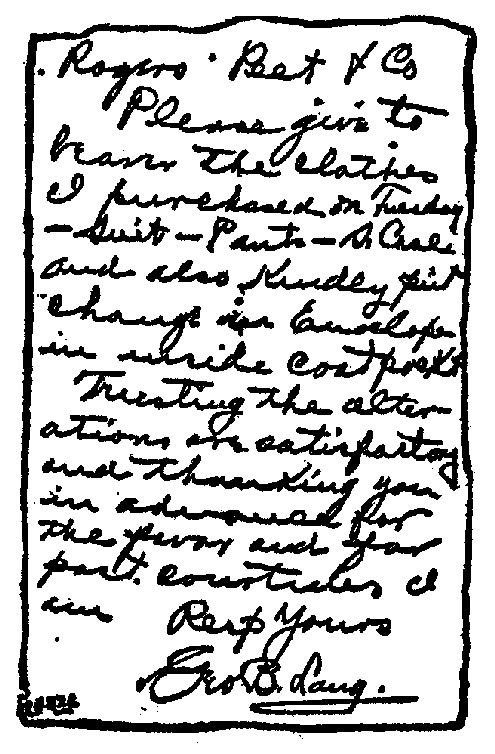 Rogers Peet & Co
Please give to
bearer the clothes
I purchased on Tuesday
- Suit - Pants - S. Coat
and also kindly put
change in Envelope
in inside coat pocket
Trusting the alter-
ations are satisfactory
and thanking you
in advance for
the favor and for
past courtesies I
am Resp Yours
Geo B. Lang.